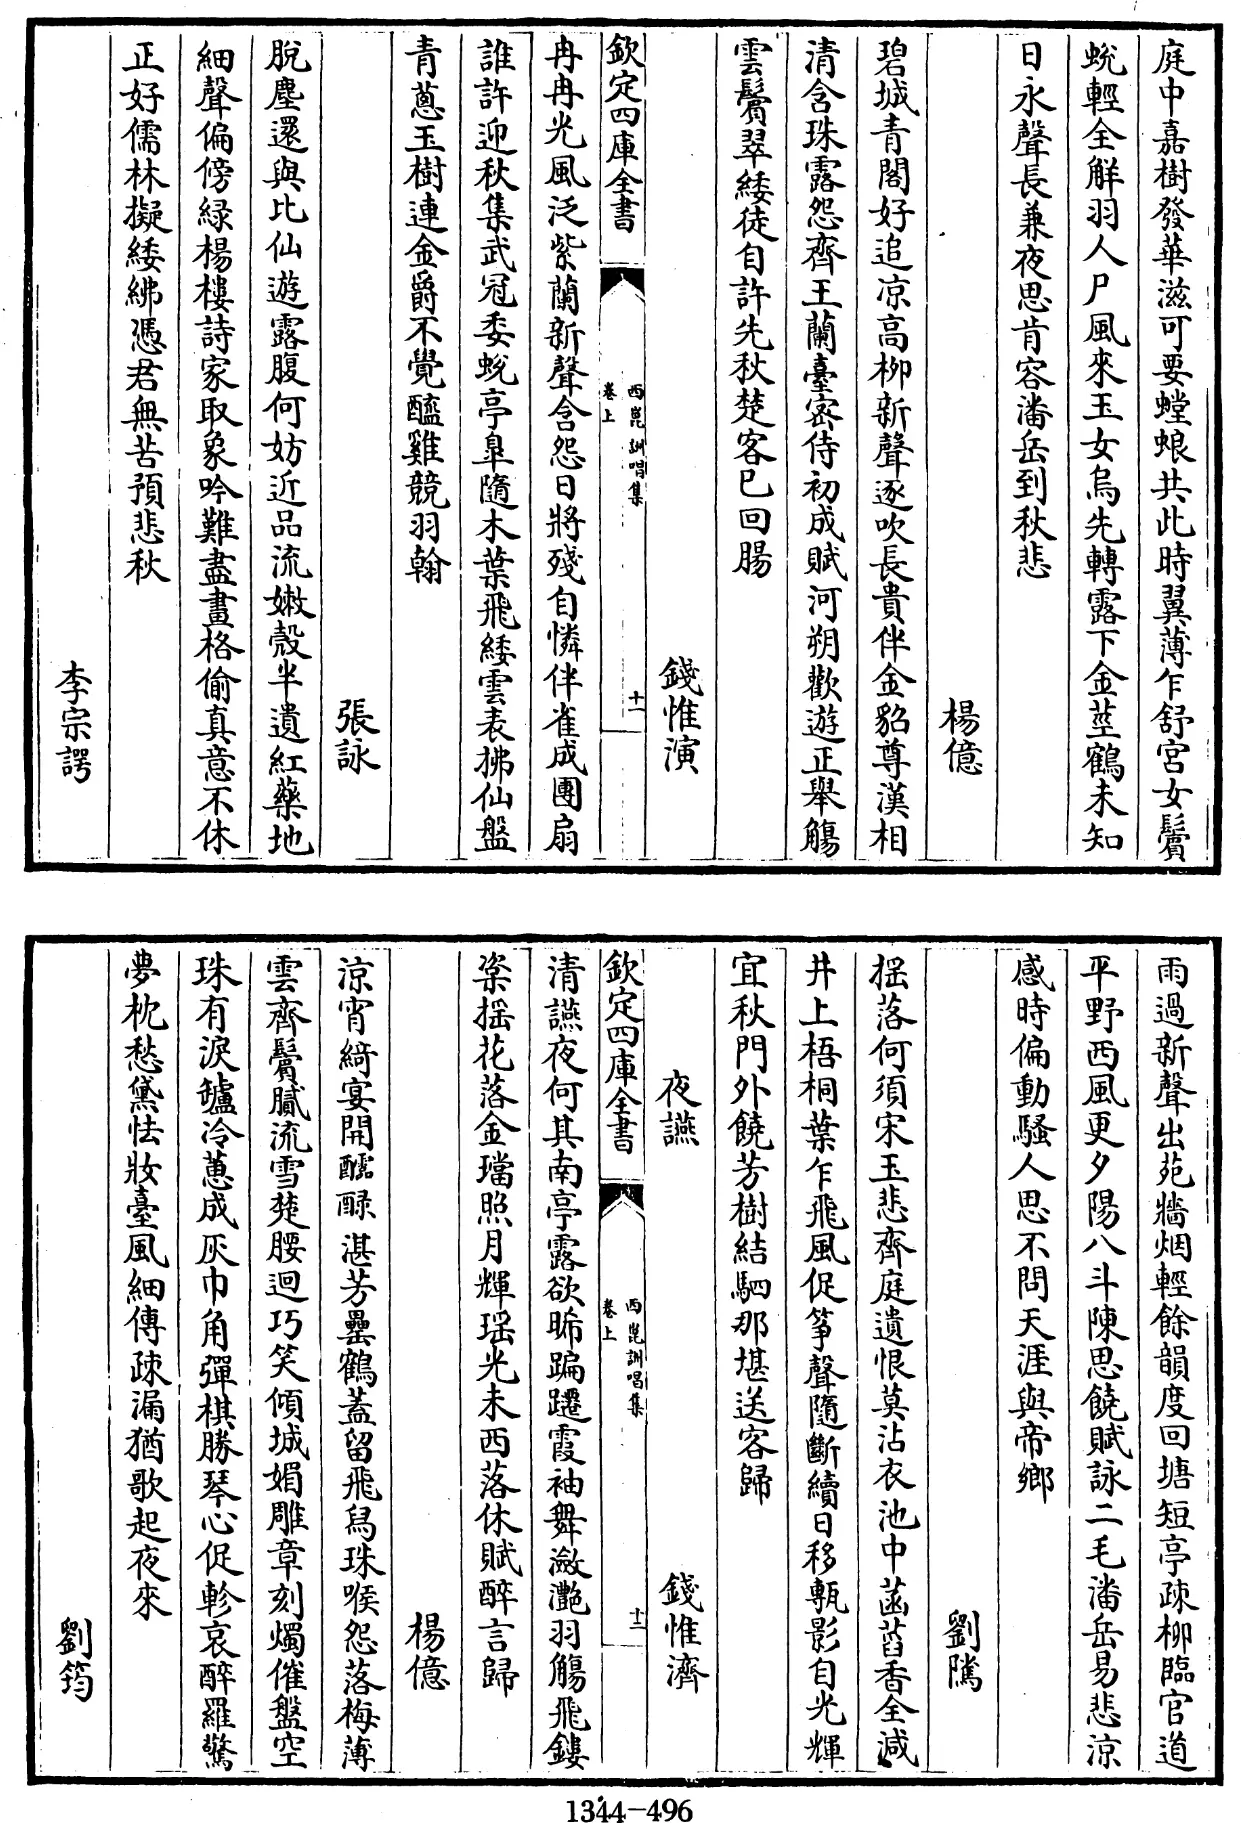 庭中嘉樹發華滋可要螳蜋共此時翼薄乍舒宮女鬢
蛻輕全解羽人尸風來玉女烏先轉露下金莖鶴未知
日永聲長兼夜思肯容潘岳到秋悲
楊億
碧城青閣好追凉高柳新聲逐吹長貴伴金貂尊漢相
清含珠露怨齊王蘭臺密侍初成賦河朔歡遊正舉觴
雲鬢翠緌徒自許先秋楚客已回腸
錢惟演
欽定四庫全書
西崑詶唱集
卷上
十一
冉冉光風泛紫蘭新聲含怨日將殘自憐伴雀成團扇
誰許迎秋集武冠委蛻亭臯隨木葉飛緌雲表拂仙盤
青蔥玉樹連金爵不覺醯雞競羽翰
張詠
脫塵還與比仙遊露腹何妨近品流嫩殼半遺紅藥地
細聲偏傍緑楊樓詩家取象吟難盡畫格偷真意不休
正好儒林擬緌紼憑君無苦預悲秋
李宗諤
雨過新聲出苑牆烟輕餘韻度回塘短亭疎柳臨官道
平野西風更夕陽八斗陳思饒賦詠二毛潘岳易悲涼
感時偏動騷人思不問天涯與帝鄉
劉隲
揺落何須宋玉悲齊庭遺恨莫沾衣池中菡萏香全減
井上梧桐葉乍飛風促筝聲隨斷續日移甎影自光輝
宜秋門外饒芳樹結駟那堪送客歸
夜讌
錢惟濟
欽定四庫全書
西崑詶唱集
卷上
十二
清讌夜何其南亭露欲晞蹁躚霞袖舞瀲灔羽觴飛鏤
楶揺花落金璫照月輝瑶光未西落休賦醉言歸
楊億
涼宵綺宴開醽醁湛芳罍鶴蓋留飛舃珠喉怨落梅薄
雲齊鬢膩流雪楚腰迴巧笑傾城媚雕章刻燭催盤空
珠有淚罏冷蕙成灰巾角彈棋勝琴心促軫哀醉羅驚
夢枕愁黛怯妝臺風細傳疎漏猶歌起夜來
劉筠
1344-496